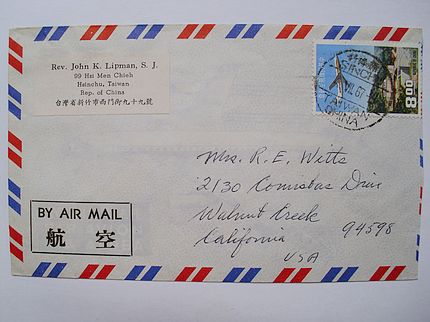 Rev. John K. Lipman, S. J.
99 Hsi Men Chieh
Hsinchu, Taiwan
Rep. of China
台灣省新竹市西門街九十九號
800
TAIWAN
CHINA
Mrs. R. E. Witts
2130 Comistas Drive
Walnut Creek
California 94598
USA
BY AIR MAIL
航 空